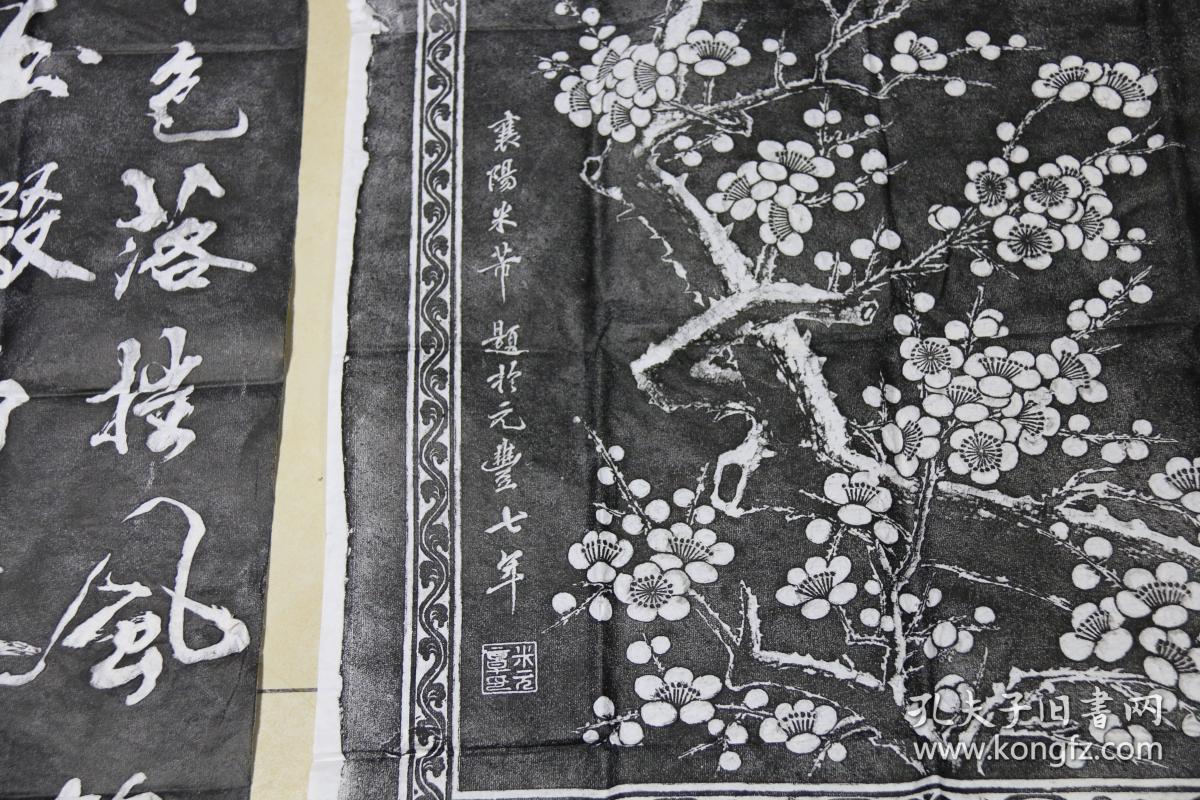 色落捿風
發
襄陽米芾題於元豐七年
米元章印
孔夫子旧書网
www.kongfz.com